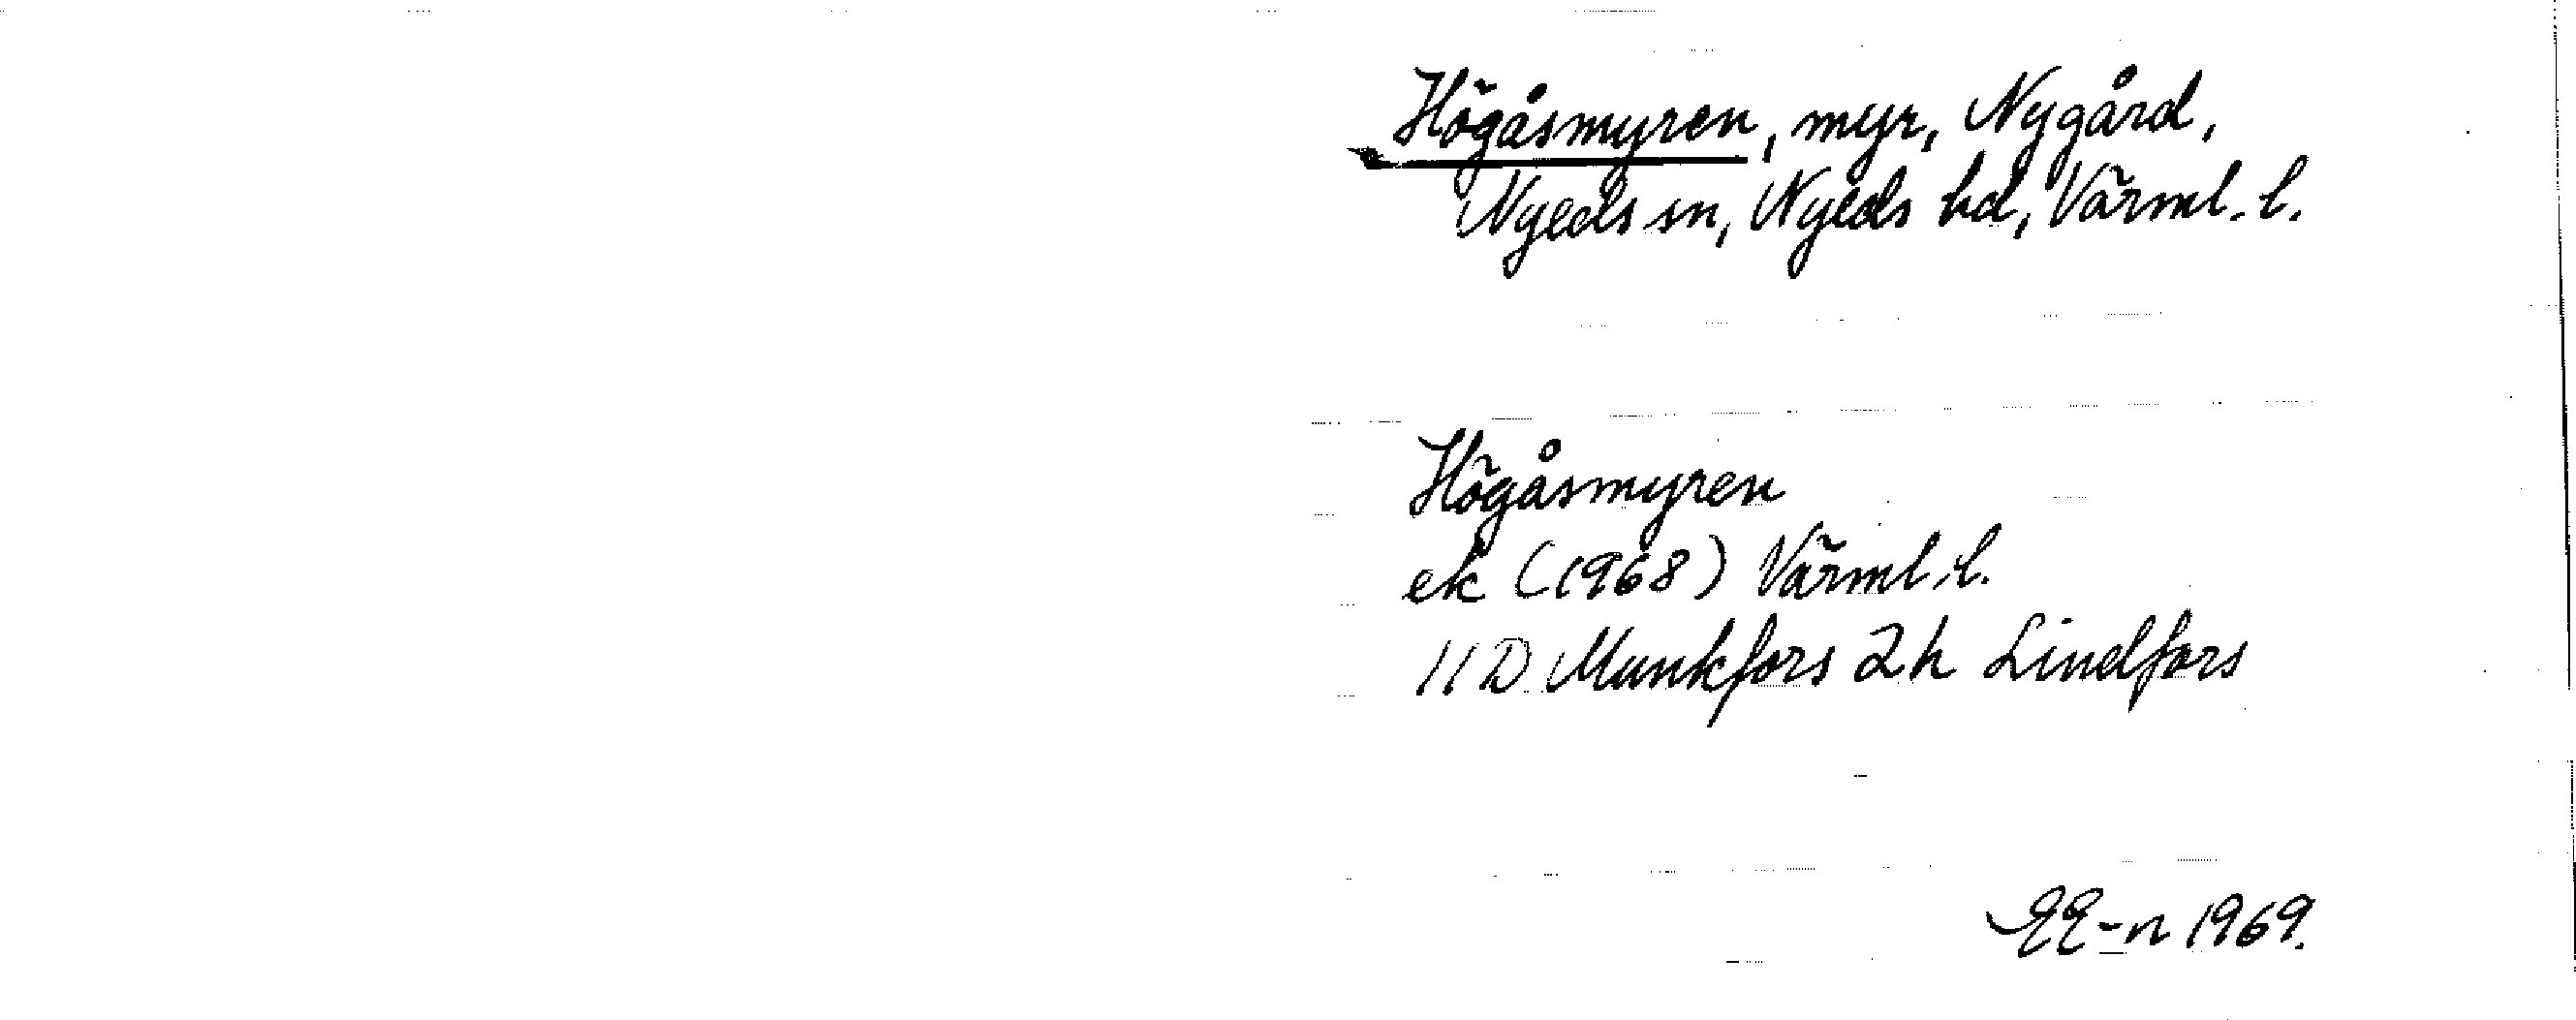 Högåsmyren, myr, Nygård,
Nyeds sn, Nyeds hd, Värml. l.
Högåsmyren
ek (1968) Värml. l.
11 D Munkfors 2h Lindfors
EE-n 1969.